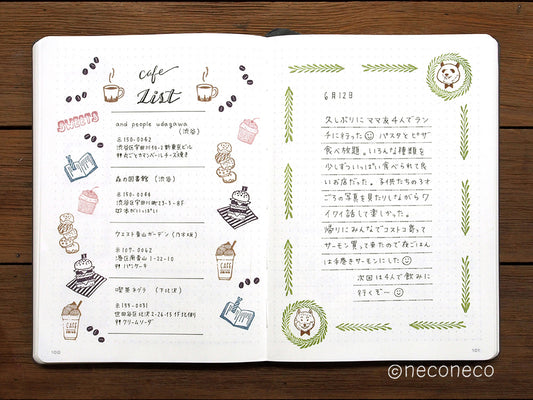 cafe
List
SWEETS
and people udagawa
(渋谷)
〒150-0042
森の図書館 (渋谷)
〒150-0044
本がいっぱい
ウエスト青山ガーデン (乃木坂)
〒107-0062
港区南青山1-22-10
パンケーキ
喫茶ネグラ (下北沢)
〒155-0031
世田谷区北沢2-26-13 1F北側
クリームソーダ
CAFE
CAFE
100
6月12日
久しぶりにママ友4人でラン
チに行った パスタとピザ
食べ放題。いろんな種類を
少しずついっぱい食べられて良
いお店だった。子供たちの3才
ごろの写真を見たりしながらワ
イワイ話して楽しかった。
帰りにみんなでコストコ寄って
サーモン買って来たので夜ごはん
は手巻きサーモンにした
次回は4人で飲みに
行くぞ〜
101
©neconeco